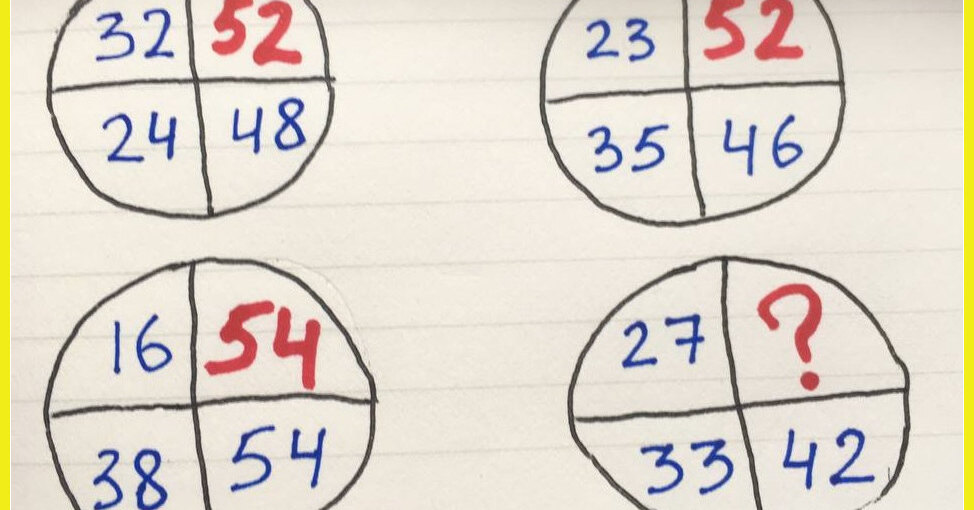 32 52 23 52
24 48 35 46
16 54 27 ?
38 54 33 42